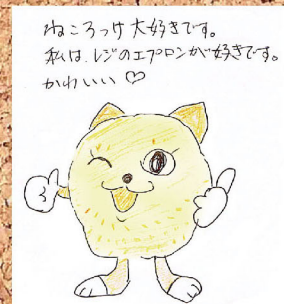 ねころっけ大好きです。
私は、レジのエプロンが好きです。
かわいい♡